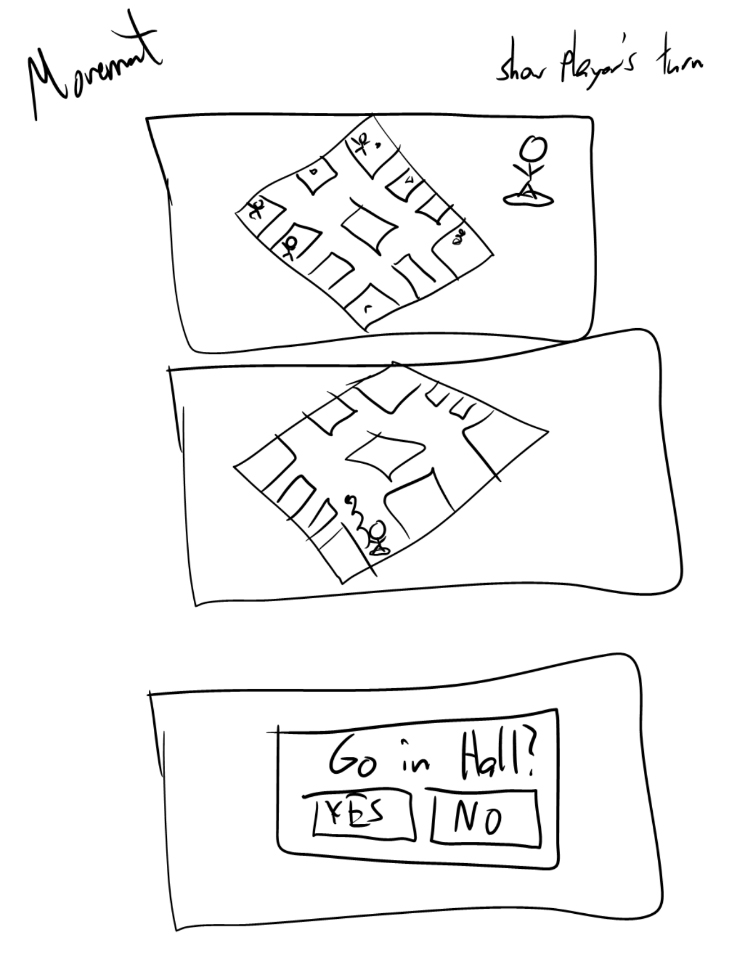 Movement
show Player's turn
Go in Hall?
YES
NO